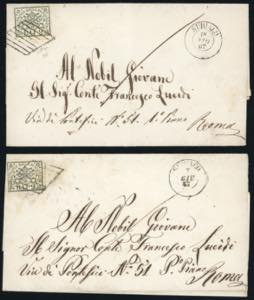 SUBIACO
Al Nobil Giovane
Il Sig Conte Francesco Lucidi
Via di Pontefici N° 51 1° Piano
Roma
Al Nobil Giovane
Il Signor Conte Francesco Lucidi
Via di Pontefici N° 51 P° Piano
Roma